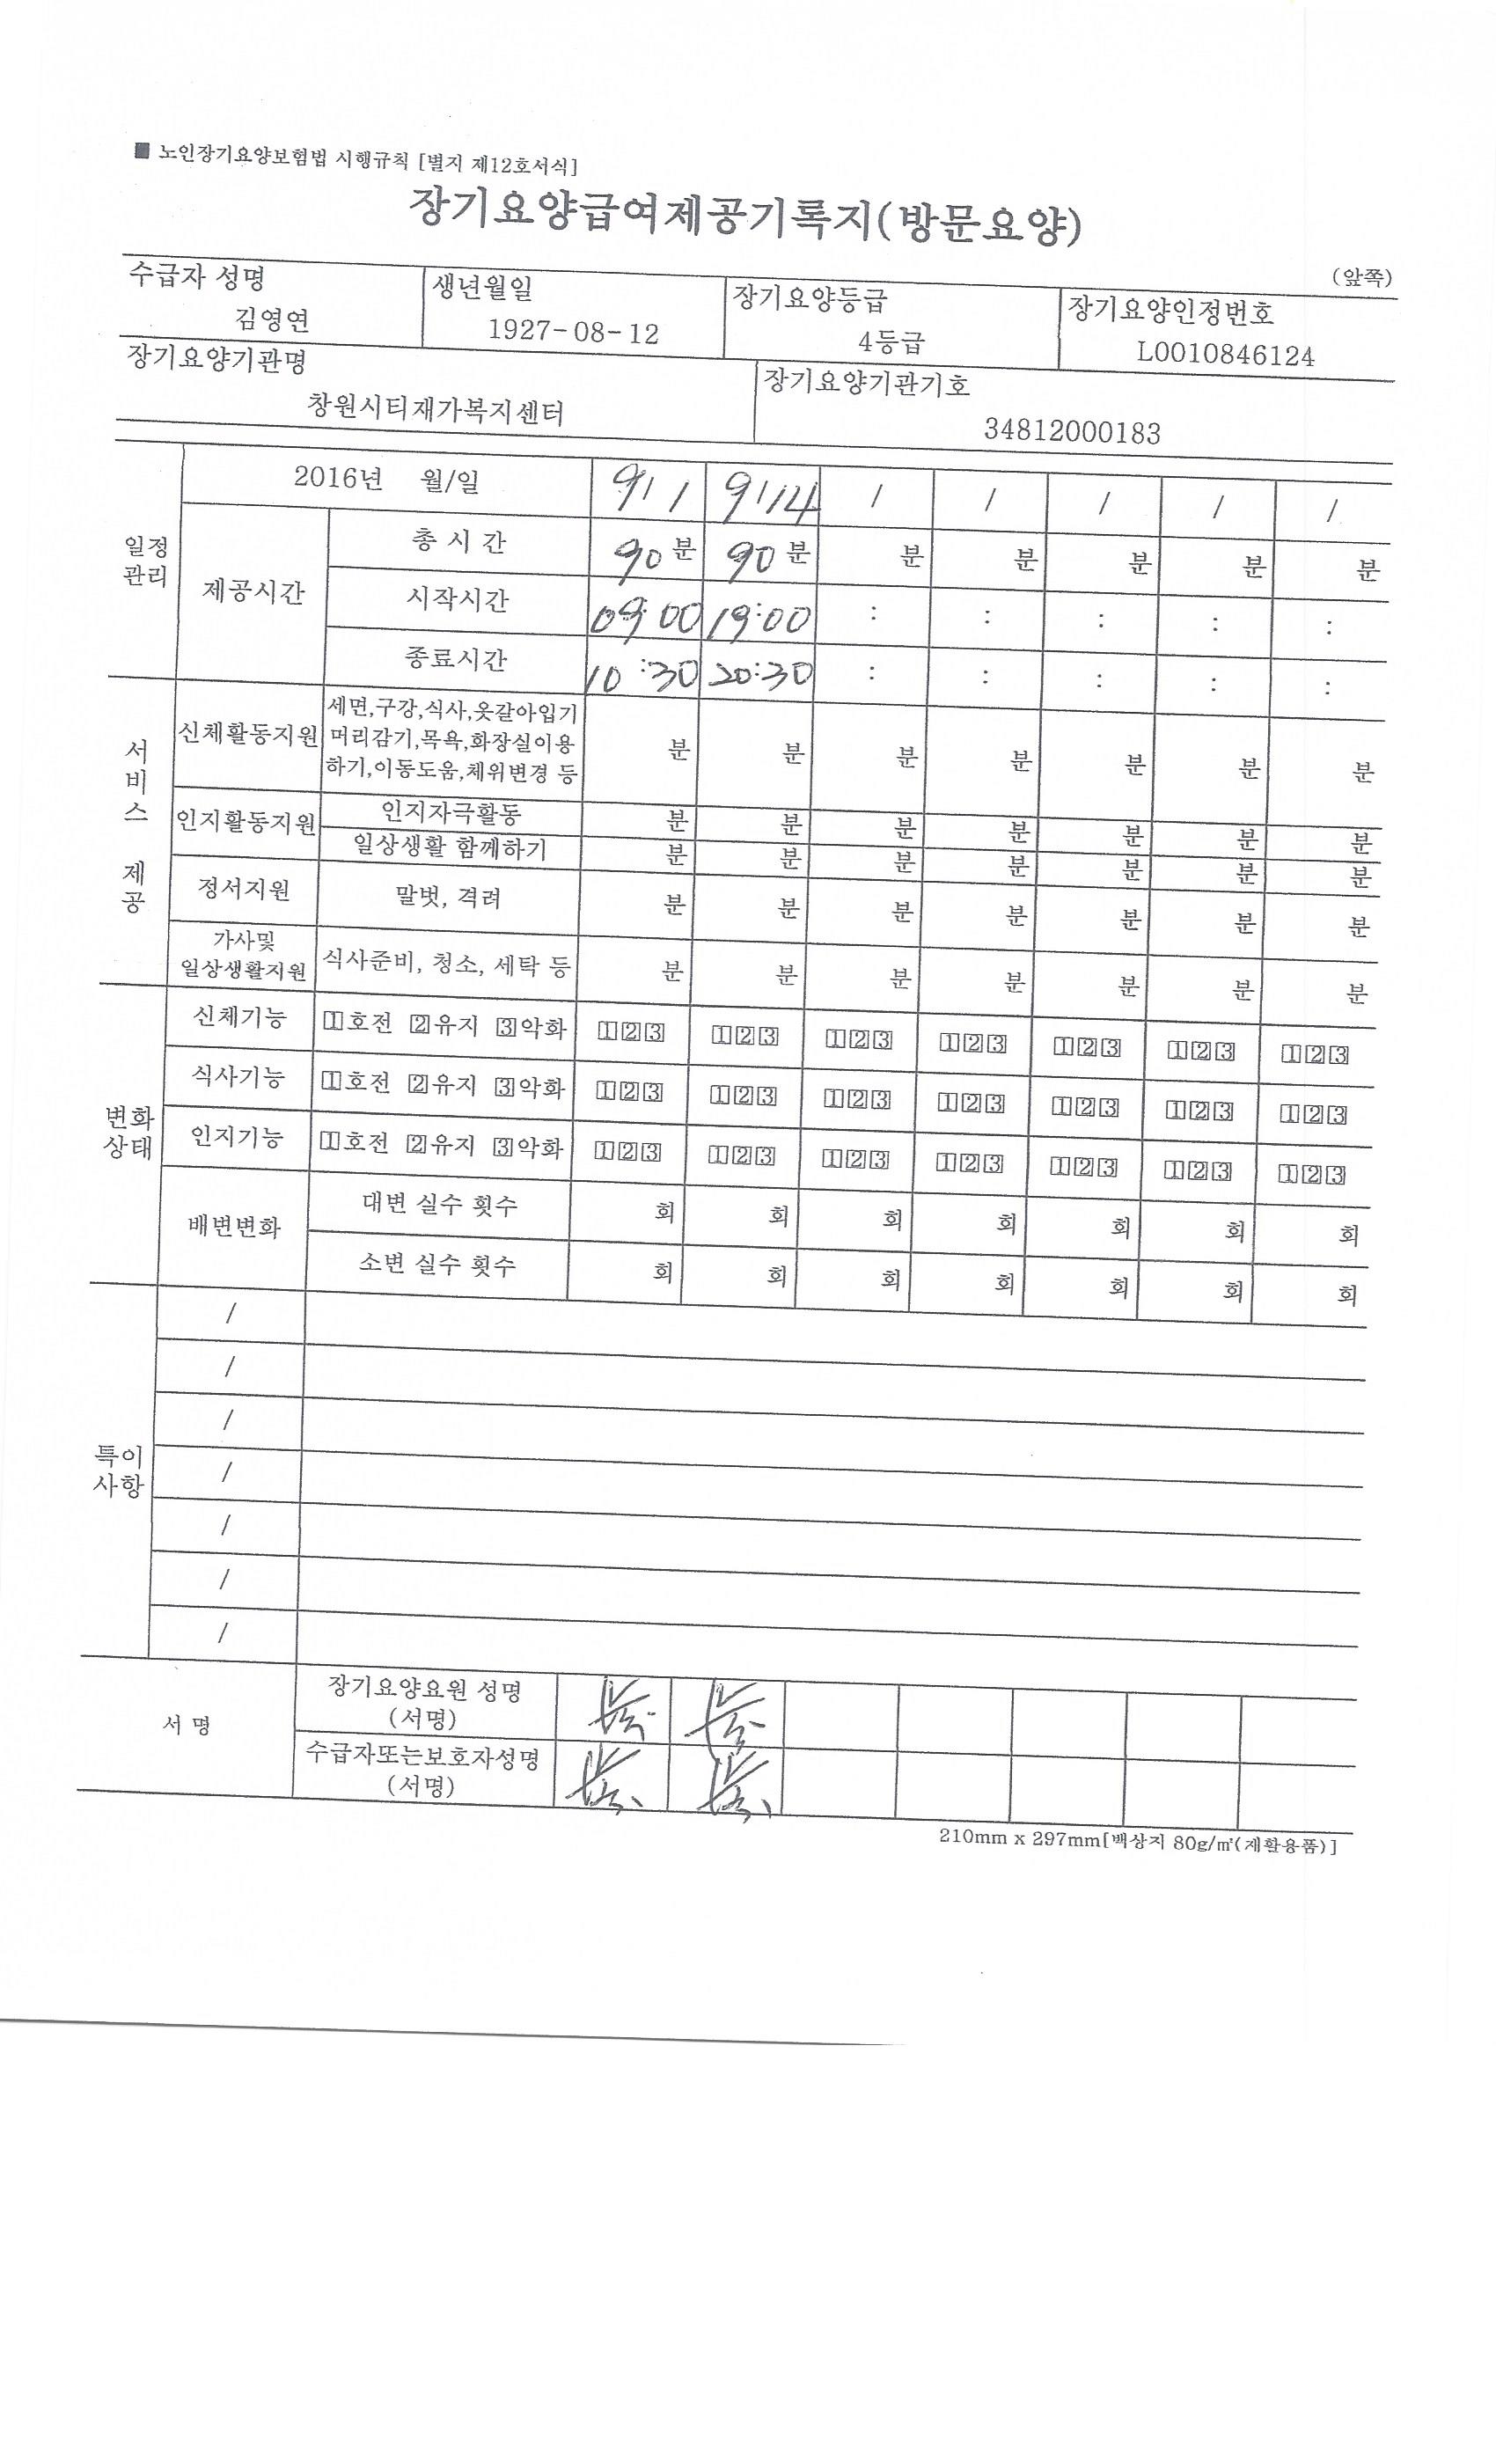 ■ 노인장기요양보험법 시행규칙 [별지 제12호서식]
장기요양급여제공기록지(방문요양)
(앞쪽)
수급자 성명 생년월일 장기요양등급 장기요양인정번호
김영연 1927-08-12 4등급 L0010846124
장기요양기관명 장기요양기관기호
창원시티재가복지센터 34812000183
일정관리
2016년 월/일 9/1 9/14 / / / / /
제공시간
총 시 간 90분 90분 분 분 분 분 분
시작시간 09:00 19:00 : : : : :
종료시간 10:30 20:30 : : : : :
서비스 제공
신체활동지원
세면,구강,식사,옷갈아입기
머리감기,목욕,화장실이용
하기,이동도움,체위변경 등
분 분 분 분 분 분 분
인지활동지원
인지자극활동 분 분 분 분 분 분 분
일상생활 함께하기 분 분 분 분 분 분 분
정서지원 말벗, 격려 분 분 분 분 분 분 분
가사및
일상생활지원
식사준비, 청소, 세탁 등 분 분 분 분 분 분 분
변화상태
신체기능 1호전 2유지 3악화 123 123 123 123 123 123 123
식사기능 1호전 2유지 3악화 123 123 123 123 123 123 123
인지기능 1호전 2유지 3악화 123 123 123 123 123 123 123
배변변화
대변 실수 횟수 회 회 회 회 회 회 회
소변 실수 횟수 회 회 회 회 회 회 회
특이사항
/
/
/
/
/
/
/
서 명
장기요양요원 성명
(서명)
수급자또는보호자성명
(서명)
210mm x 297mm[백상지 80g/㎡(재활용품)]